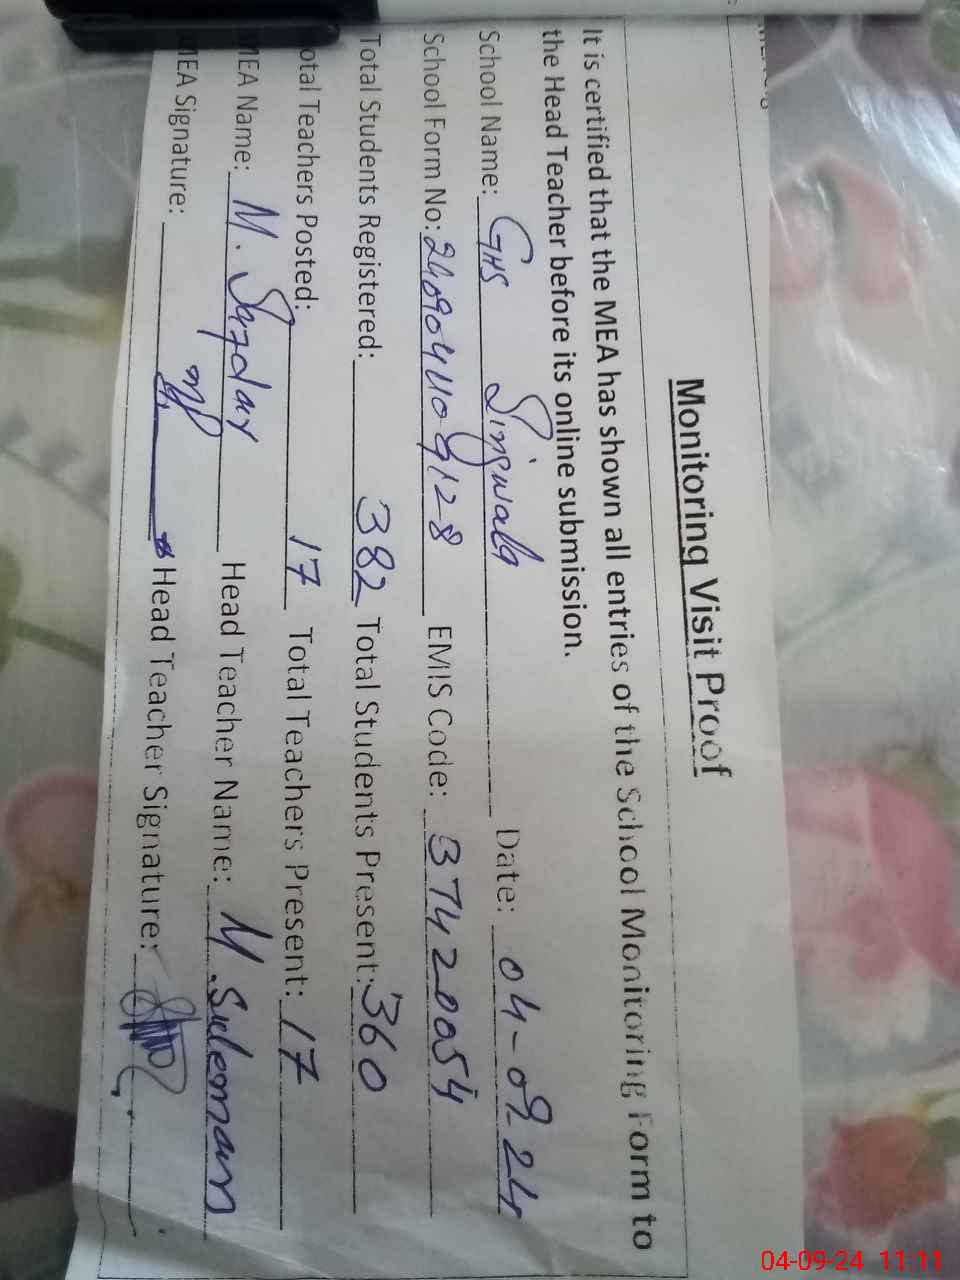 Monitoring Visit Proof
It is certified that the MEA has shown all entries of the School Monitoring Form to
the Head Teacher before its online submission.
School Name: GHS Singwala Date: 04-09-24
School Form No: EMIS Code: 37420054
Total Students Registered: 382 Total Students Present: 360
otal Teachers Posted: 17 Total Teachers Present: 17
MEA Name: M. Safdar Head Teacher Name: M. Suleman
MEA Signature: Head Teacher Signature:
04-09-24 11:11